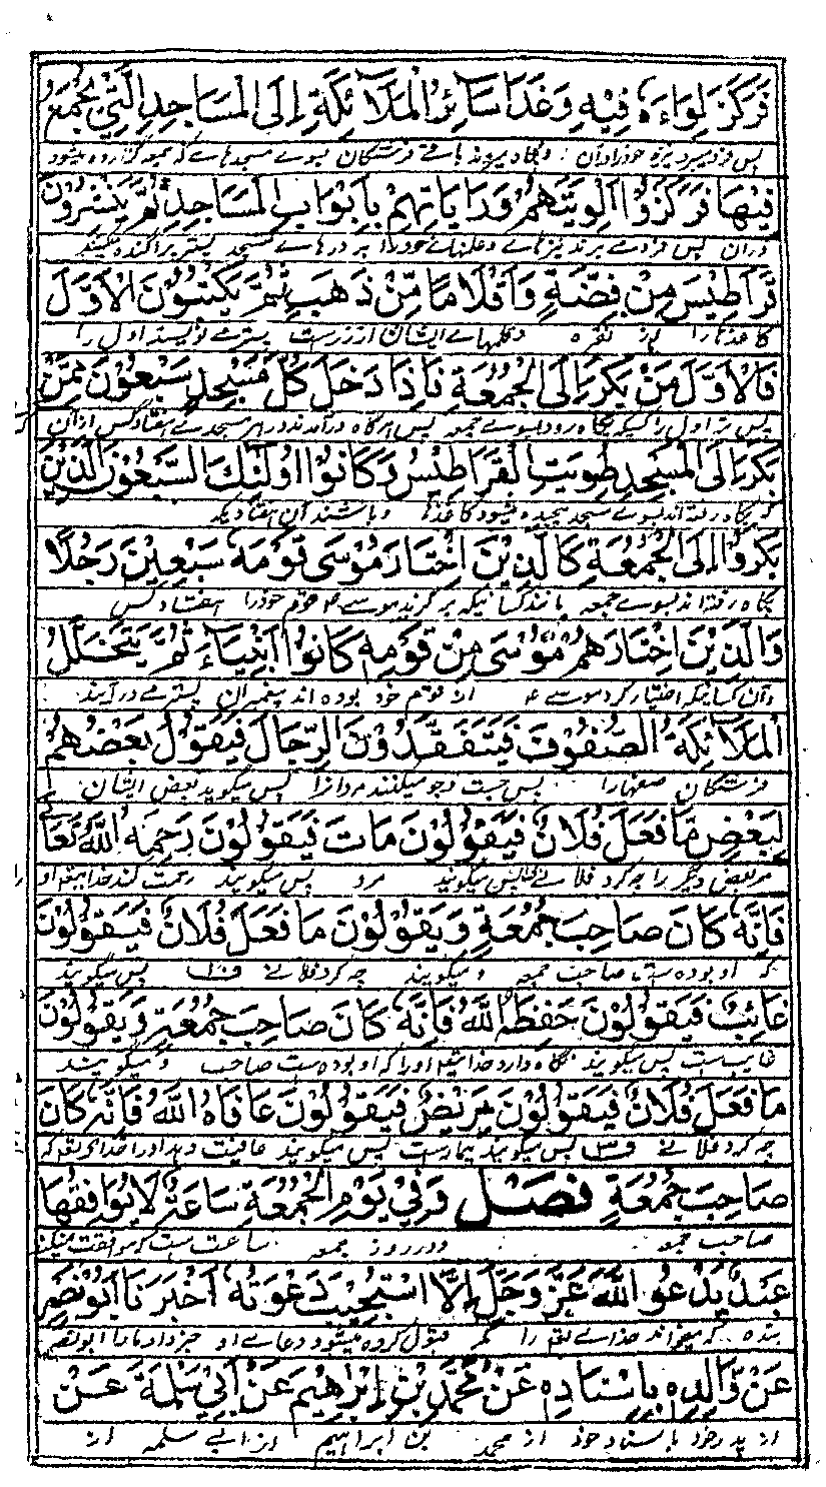 فَرَكَزَ لِوَاءَهٗ فِيْهِ وَغَدَا سَآئِرُ الْمَلَآئِكَةِ إِلَى الْمَسَاجِدِ الَّتِيْ يُجَمَّعُ
پس فرو میبرد نیزه خود را در آن و پگاه میروند باقی فرشتگان بسوے مسجدہاے کہ جمعہ گزارده میشود
فِيْهَا فَرَكَزُوْا أَلْوِيَتَهُمْ وَرَايَاتِهِمْ بِأَبْوَابِ الْمَسَاجِدِ ثُمَّ يَنْشُرُوْنَ
دران پس فرو مے برند نیزہاے و علمہاے خود را بر درہاے مسجد پستر پراگنده میکنند
قَرَاطِيْسَ مِنْ فِضَّةٍ وَأَقْلَامًا مِّنْ ذَهَبٍ ثُمَّ يَكْتُبُوْنَ الْأَوَّلَ
کاغذہا را از نقره و قلمہاے ایشان از زرست پستر مے نویسند اول را
فَالْأَوَّلَ مَنْ بَكَّرَ إِلَى الْجُمُعَةِ فَإِذَا دَخَلَ كُلَّ مَسْجِدٍ سَبْعُوْنَ مِمَّنْ
پس تر اول را کسیکہ پگاه رود بسوے جمعہ پس ہرگاه درآمدند در ہر مسجدے ہفتاد کس ازان
بَكَّرَ إِلَى الْمَسْجِدِ طُوِيَتِ الْقَرَاطِيْسُ وَكَانُوْا أُولٰئِكَ السَّبْعُوْنَ الَّذِيْنَ
کہ پگاه رفتہ اند بسوے مسجد پیچیده میشود کاغذہا و باشند آن ہفتاد یکہ
بَكَّرُوْا إِلَى الْجُمُعَةِ كَالَّذِيْنَ اخْتَارَ مُوْسٰى قَوْمَهٗ سَبْعِيْنَ رَجُلًا
پگاه رفتہ اند بسوے جمعہ مانند کسانیکہ برگزید موسے ع قوم خود را ہفتاد کس
وَالَّذِيْنَ اخْتَارَهُمْ مُّوْسٰى مِنْ قَوْمِهٖ كَانُوْا أَنْبِيَاءَ ثُمَّ يَتَخَلَّلُ
و آن کسانیکہ اختیار کرد موسے ع از قوم خود بوده اند پیغمبران پستر مے درآیند
الْمَلَآئِكَةُ الصُّفُوْفَ فَيَتَفَقَّدُوْنَ الرِّجَالَ فَيَقُوْلُ بَعْضُهُمْ
فرشتگان صفہا را پس جست و جو میکنند مردانرا پس میگوید بعض ایشان
لِبَعْضٍ مَّا فَعَلَ فُلَانٌ فَيَقُوْلُوْنَ مَاتَ فَيَقُوْلُوْنَ رَحِمَهُ اللّٰهُ تَعَالٰى
مر بعض دیگر را چہ کرد فلانے پس میگویند مرد پس میگویند رحمت کند خدایتعالی او را
فَإِنَّهٗ كَانَ صَاحِبَ جُمُعَةٍ وَيَقُوْلُوْنَ مَا فَعَلَ فُلَانٌ فَيَقُوْلُوْنَ
کہ او بوده ست صاحب جمعہ و میگویند چہ کرد فلانے پس میگویند
غَائِبٌ فَيَقُوْلُوْنَ حَفِظَهُ اللّٰهُ فَإِنَّهٗ كَانَ صَاحِبَ جُمُعَةٍ وَيَقُوْلُوْنَ
غایب ست پس میگویند نگاه دارد خدایتعالی او را کہ او بوده ست صاحب و میگویند
مَا فَعَلَ فُلَانٌ فَيَقُوْلُوْنَ مَرِيْضٌ فَيَقُوْلُوْنَ عَافَاهُ اللّٰهُ فَإِنَّهٗ كَانَ
چہ کرد فلانے پس میگویند بیمارست پس میگویند عافیت دہد او را خداے تعالی کہ
صَاحِبَ جُمُعَةٍ فصل وَفِيْ يَوْمِ الْجُمُعَةِ سَاعَةٌ لَا يُوَافِقُهَا
صاحب جمعہ و در روز جمعہ ساعت ست کہ موافقت نمیکند
عَبْدٌ يَدْعُو اللّٰهَ عَزَّ وَجَلَّ إِلَّا اسْتُجِيْبَ دَعْوَتُهٗ أَخْبَرَنَا أَبُوْ نَصْرٍ
بنده کہ میخواند خداے تعالی را مگر قبول کرده میشود دعاے او خبر داد ما را ابو نصر
عَنْ وَّالِدِهٖ بِإِسْنَادِهٖ عَنْ مُّحَمَّدِ بْنِ إِبْرَاهِيْمَ عَنْ أَبِيْ سَلَمَةَ عَنْ
از پدر خود باسناد خود از محمد بن ابراہیم از ابے سلمہ از